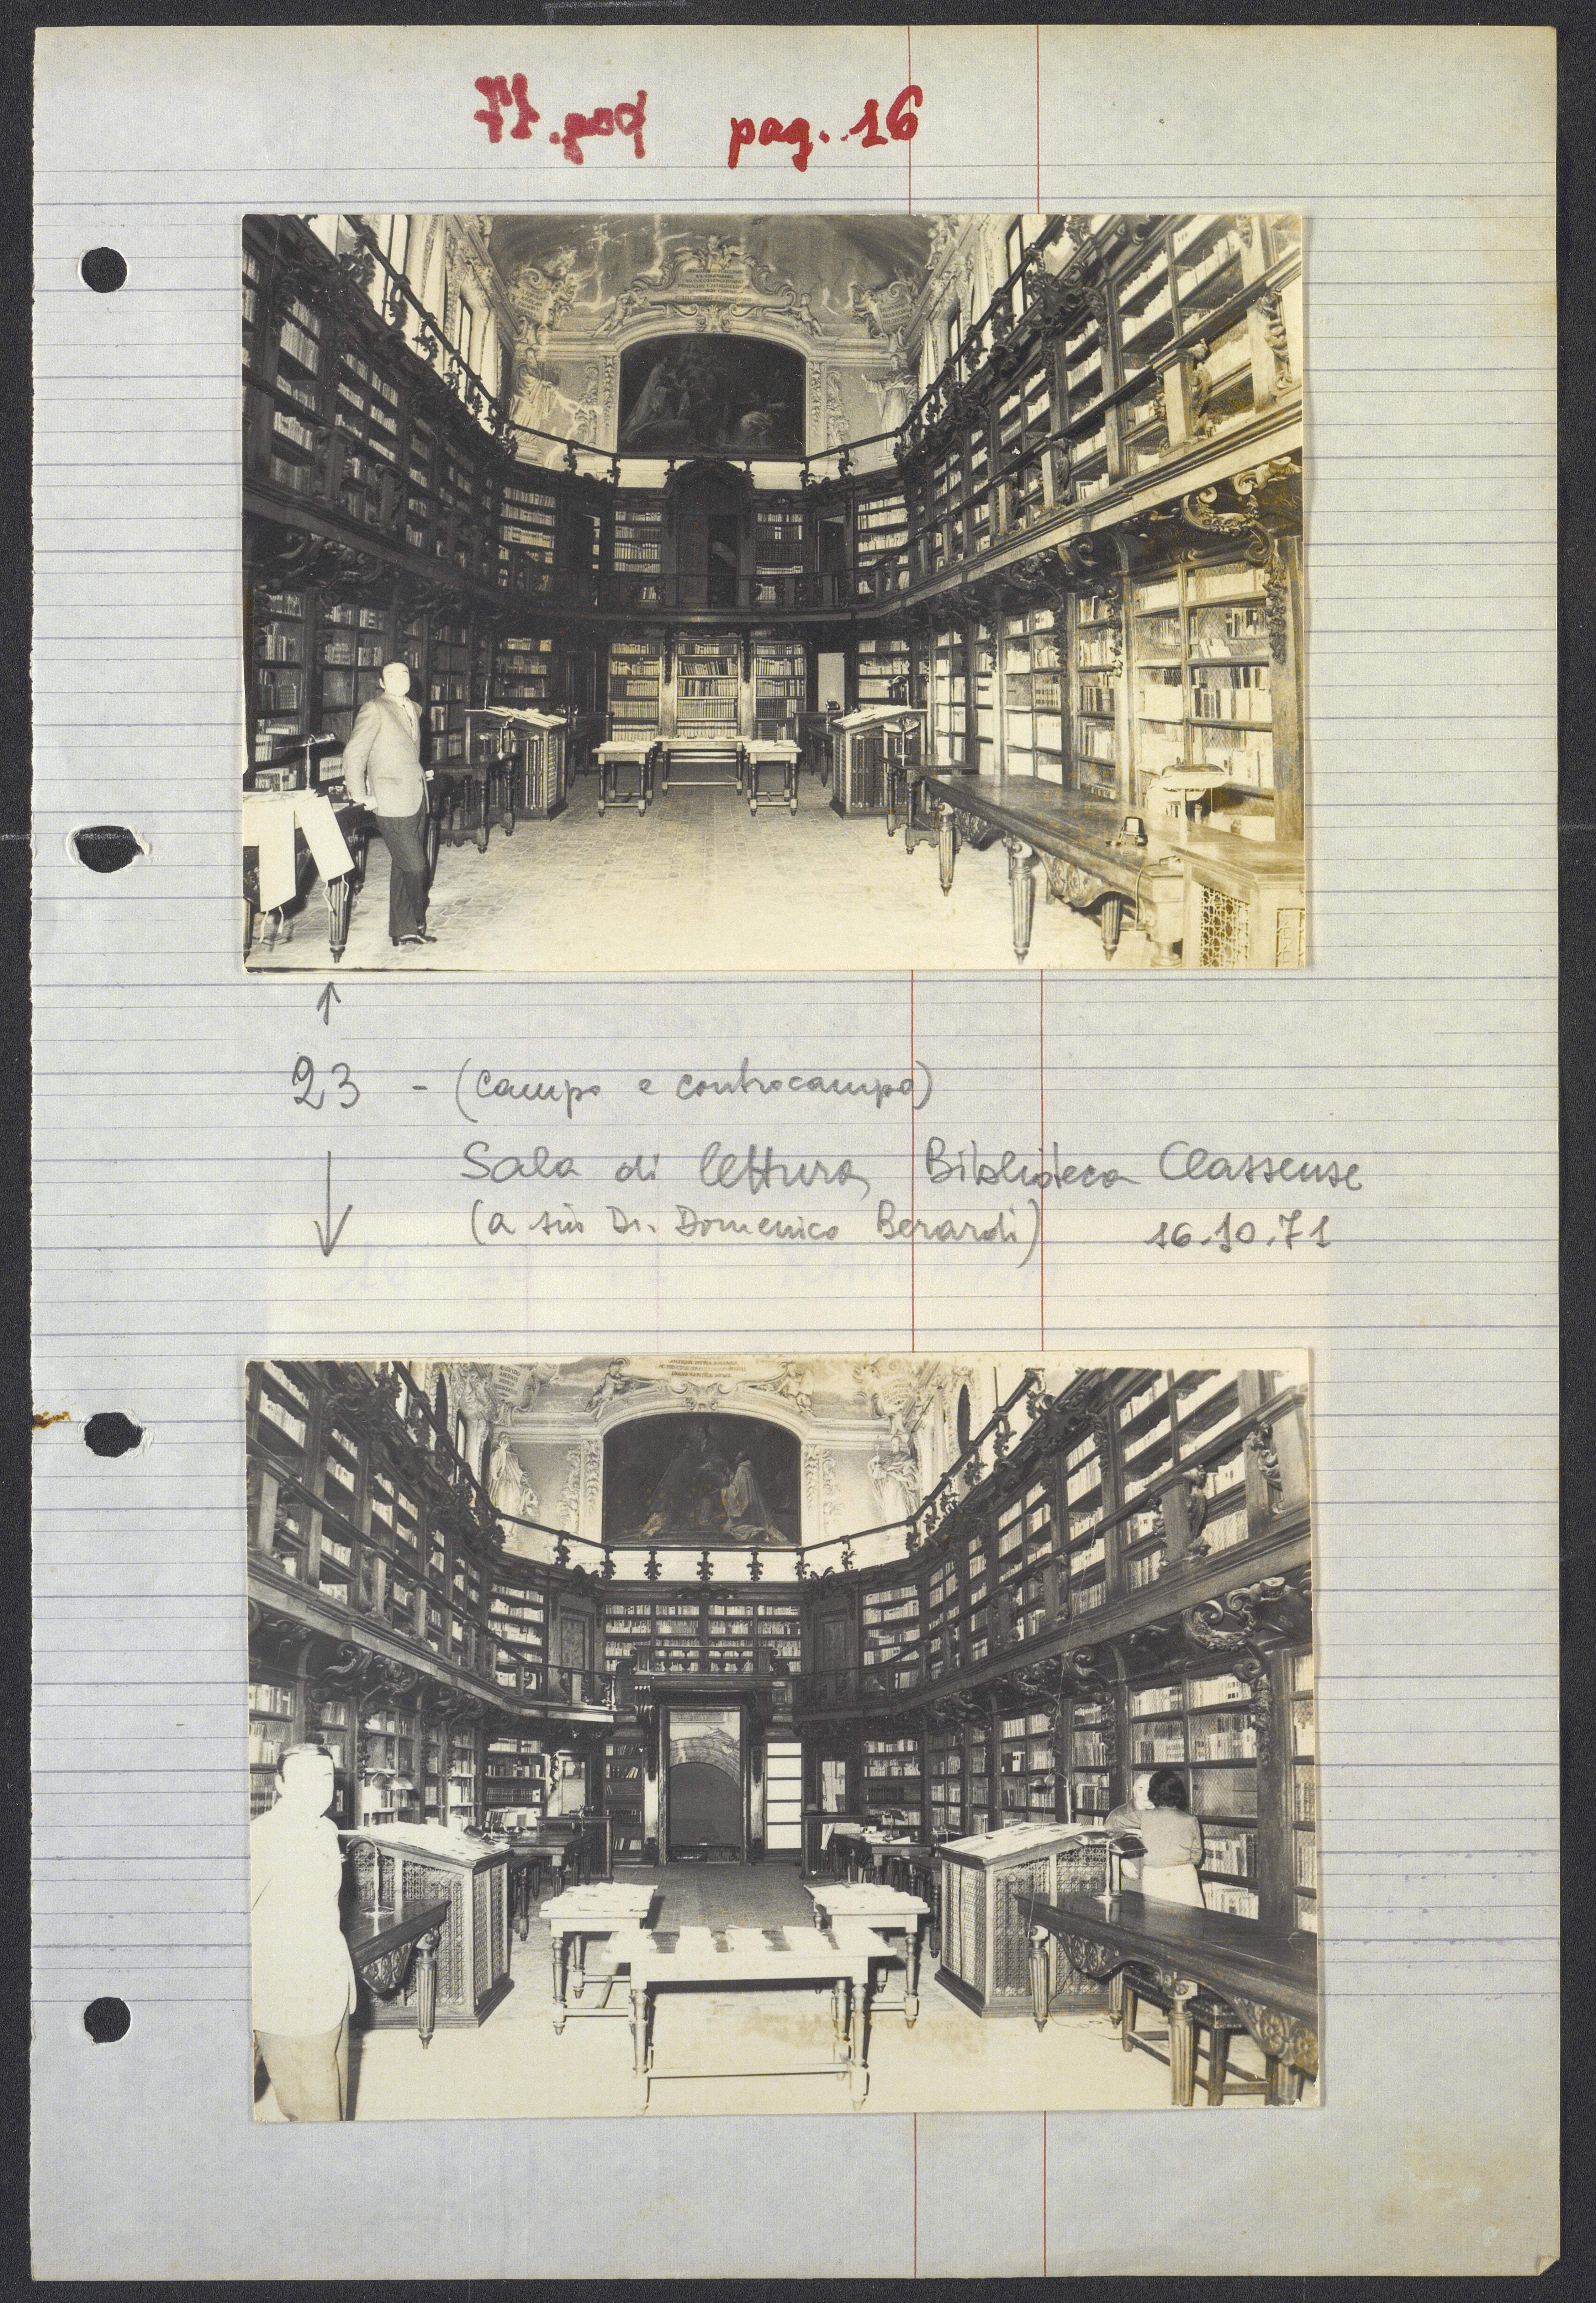 pag. 16
↑
23 - (campo e controcampo)
Sala di lettura, Biblioteca Classense
↓ (a sin Dr. Domenico Berardi) 16.10.71